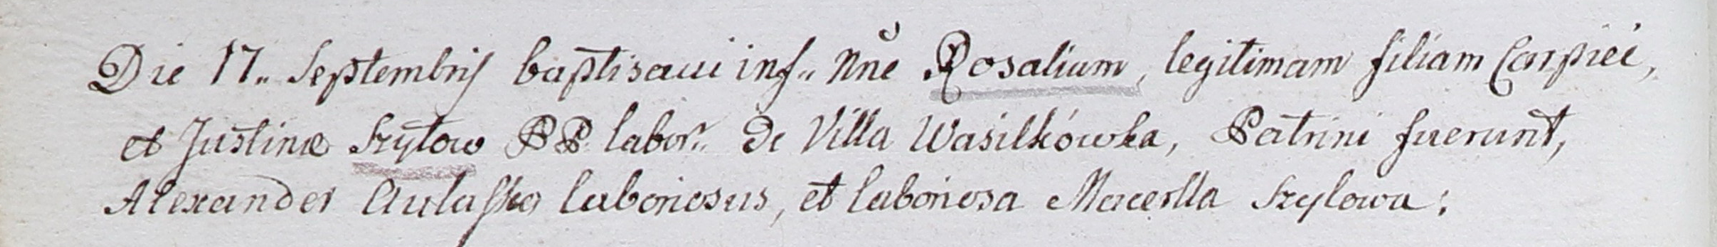 Die 17.. Septembris baptisavi inf.. Nñe Rosalium, legitimam filiam Carpiei,
et Justinæ Szyłow PP labor.. de Villa Wasilkówka, Patrini fuerunt,
Alexander Aulasko laboriosus, et laboriosa Macerlla Szylowa: